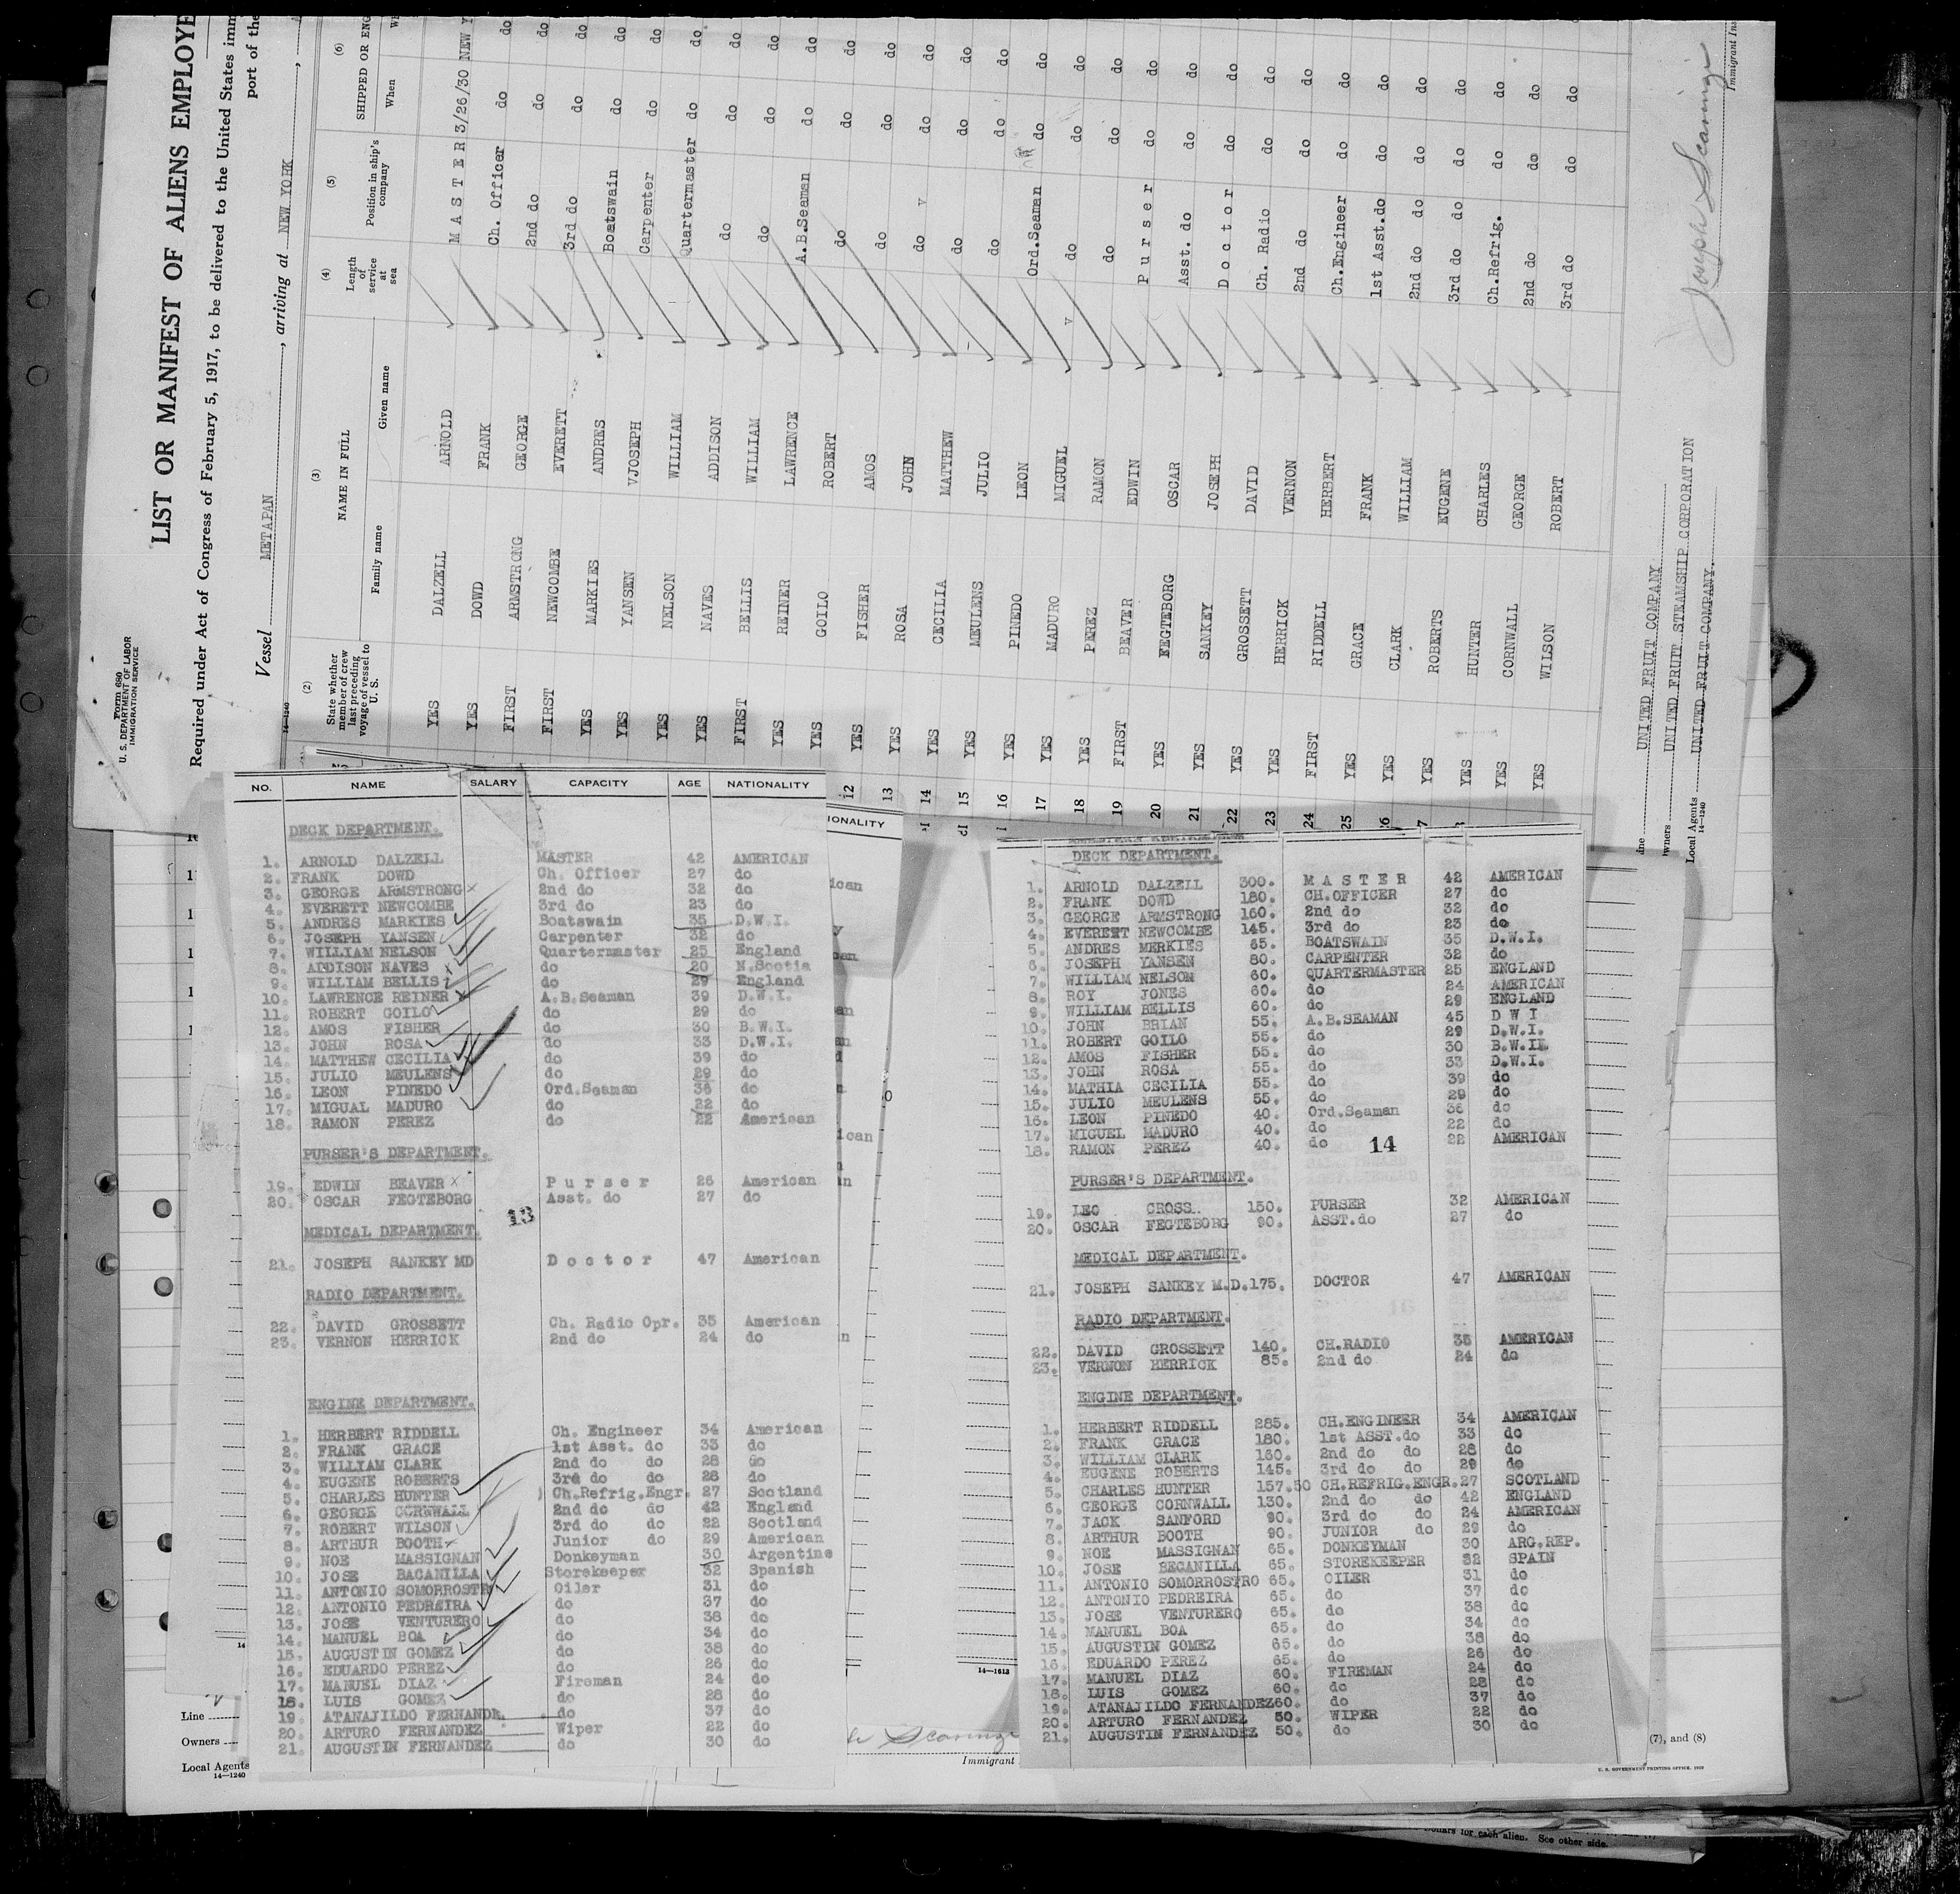 Form 680
U. S. DEPARTMENT OF LABOR
IMMIGRATION SERVICE
LIST OR MANIFEST OF ALIENS EMPLOYE
Required under Act of Congress of February 5, 1917, to be delivered to the United States imm
port of the
Vessel METAPAN, arriving at NEW YORK
14—1240
(2) (3) (4) (5) (6)
State whether member of crew last preceding voyage of vessel to U. S. NAME IN FULL Length of service at sea Position in ship's company SHIPPED OR ENG
Family name Given name When
YES DALZELL ARNOLD M A S T E R 3/26/30 NEW Y
YES DOWD FRANK Ch. Officer do do
FIRST ARMSTRONG GEORGE 2nd do do do
FIRST NEWCOMBE EVERETT 3rd do do do
YES MARKIES ANDRES Boatswain do do
YES YANSEN VJOSEPH Carpenter do do
YES NELSON WILLIAM Quartermaster do do
YES NAVES ADDISON do do do
FIRST BELLIS WILLIAM do do do
YES REINER LAWRENCE A.B.Seaman do do
YES GOILO ROBERT do do do
12 YES FISHER AMOS do do do
13 YES ROSA JOHN do do do
14 YES CECILIA MATTHEW do do do
15 YES MEULENS JULIO do do do
16 YES PINEDO LEON Ord.Seaman do do
17 YES MADURO MIGUEL do do do
18 YES PEREZ RAMON do do do
19 FIRST BEAVER EDWIN P u r s e r do do
20 YES FEGTEBORG OSCAR Asst. do do do
21 YES SANKEY JOSEPH D o c t o r do do
22 YES GROSSETT DAVID Ch. Radio do do
23 YES HERRICK VERNON 2nd do do do
24 FIRST RIDDELL HERBERT Ch.Engineer do do
25 YES GRACE FRANK 1st Asst.do do do
26 YES CLARK WILLIAM 2nd do do do do
7 YES ROBERTS EUGENE 3rd do do do do
YES HUNTER CHARLES Ch.Refrig. do do
YES CORNWALL GEORGE 2nd do do do
YES WILSON ROBERT 3rd do do do
Line UNITED FRUIT COMPANY
Owners UNITED FRUIT STEAMSHIP CORPORATION
Local Agents UNITED FRUIT COMPANY.
14—1240
Joseph Scaringe
Immigrant Ins
NO. NAME SALARY CAPACITY AGE NATIONALITY
DECK DEPARTMENT.
1. ARNOLD DALZELL MASTER 42 AMERICAN
2. FRANK DOWD Ch. Officer 27 do
3. GEORGE ARMSTRONG 2nd do 32 do
4. EVERETT NEWCOMBE 3rd do 23 do
5. ANDRES MARKIES Boatswain 35 D.W.I.
6. JOSEPH YANSEN Carpenter 32 do
7. WILLIAM NELSON Quartermaster 25 England
8. ADDISON NAVES do 20 N.Scotia
9. WILLIAM BELLIS do 29 England
10. LAWRENCE REINER A.B.Seaman 39 D.W.I.
11. ROBERT GOILO do 29 do
12. AMOS FISHER do 30 B.W.I.
13. JOHN ROSA do 33 D.W.I.
14. MATTHEW CECILIA do 39 do
15. JULIO MEULENS do 29 do
16. LEON PINEDO Ord.Seaman 36 do
17. MIGUAL MADURO do 22 do
18. RAMON PEREZ do 22 American
PURSER'S DEPARTMENT.
19. EDWIN BEAVER P u r s e r 26 American
20. OSCAR FEGTEBORG Asst. do 27 do
13
MEDICAL DEPARTMENT.
21. JOSEPH SANKEY MD D o c t o r 47 American
RADIO DEPARTMENT.
22. DAVID GROSSETT Ch. Radio Opr. 35 American
23. VERNON HERRICK 2nd do 24 do
ENGINE DEPARTMENT.
1. HERBERT RIDDELL Ch. Engineer 34 American
2. FRANK GRACE 1st Asst. do 33 do
3. WILLIAM CLARK 2nd do do 28 do
4. EUGENE ROBERTS 3rd do do 28 do
5. CHARLES HUNTER Ch.Refrig.Engr. 27 Scotland
6. GEORGE CORNWALL 2nd do do 42 England
7. ROBERT WILSON 3rd do do 22 Scotland
8. ARTHUR BOOTH Junior do 29 American
9. NOE MASSIGNAN Donkeyman 30 Argentine
10. JOSE BACANILLA Storekeeper 32 Spanish
11. ANTONIO SOMORROSTR Oiler 31 do
12. ANTONIO PEDREIRA do 37 do
13. JOSE VENTURERO do 38 do
14. MANUEL BOA do 34 do
15. AUGUSTIN GOMEZ do 38 do
16. EDUARDO PEREZ do 26 do
17. MANUEL DIAZ Fireman 24 do
18. LUIS GOMEZ do 28 do
19. ATANAJILDO FERNANDR. do 37 do
20. ARTURO FERNANDEZ Wiper 22 do
21. AUGUSTIN FERNANDEZ do 30 do
IONALITY
DECK DEPARTMENT.
1. ARNOLD DALZELL 300. M A S T E R 42 AMERICAN
2. FRANK DOWD 180. CH.OFFICER 27 do
3. GEORGE ARMSTRONG 160. 2nd do 32 do
4. EVEREST NEWCOMBE 145. 3rd do 23 do
5. ANDRES MERKIES 65. BOATSWAIN 35 D.W.I.
6. JOSEPH YANSEN 80. CARPENTER 32 do
7. WILLIAM NELSON 60. QUARTERMASTER 25 ENGLAND
8. ROY JONES 60. do 24 AMERICAN
9. WILLIAM BELLIS 60. do 29 ENGLAND
10. JOHN BRIAN 55. A.B.SEAMAN 45 D W I
11. ROBERT GOILO 55. do 29 D.W.I.
12. AMOS FISHER 55. do 30 B.W.II.
13. JOHN ROSA 55. do 33 D.W.I.
14. MATHIA CECILIA 55. do 39 do
15. JULIO MEULENS 55. do 29 do
16. LEON PINEDO 40. Ord.Seaman 36 do
17. MIGUEL MADURO 40. do 22 do
18. RAMON PEREZ 40. do 22 AMERICAN
14
PURSER'S DEPARTMENT.
19. LEO CROSS. 150. PURSER 32 AMERICAN
20. OSCAR FEGTEBORG 90. ASST.do 27 do
MEDICAL DEPARTMENT.
21. JOSEPH SANKEY M.D.175. DOCTOR 47 AMERICAN
RADIO DEPARTMENT.
22. DAVID GROSSETT 140. CH.RADIO 35 AMERICAN
23. VERNON HERRICK 85. 2nd do 24 do
ENGINE DEPARTMENT.
1. HERBERT RIDDELL 285. CH.ENGINEER 34 AMERICAN
2. FRANK GRACE 180. 1st ASST.do 33 do
3. WILLIAM CLARK 160. 2nd do do 28 do
4. EUGENE ROBERTS 145. 3rd do do 29 do
5. CHARLES HUNTER 157.50 CH.REFRIG.ENGR. 27 SCOTLAND
6. GEORGE CORNWALL 130. 2nd do do 42 ENGLAND
7. JACK SANFORD 90. 3rd do do 24 AMERICAN
8. ARTHUR BOOTH 90. JUNIOR do 29 do
9. NOE MASSIGNAN 65. DONKEYMAN 30 ARG.REP.
10. JOSE BECANILLA 65. STOREKEEPER 32 SPAIN
11. ANTONIO SOMORROSTRO 65. OILER 31 do
12. ANTONIO PEDREIRA 65. do 37 do
13. JOSE VENTURERO 65. do 38 do
14. MANUEL BOA 65. do 34 do
15. AUGUSTIN GOMEZ 65. do 38 do
16. EDUARDO PEREZ 65. do 26 do
17. MANUEL DIAZ 60. FIREMAN 24 do
18. LUIS GOMEZ 60. do 28 do
19. ATANAJILDO FERNANDEZ60. do 37 do
20. ARTURO FERNANDEZ 50. WIPER 22 do
21. AUGUSTIN FERNANDEZ 50. do 30 do
14—1613
Line
Owners
Local Agents
14—1240
Scaringe
Immigrant
(7), and (8)
U. S. GOVERNMENT PRINTING OFFICE. 1929
for each alien. See other side.